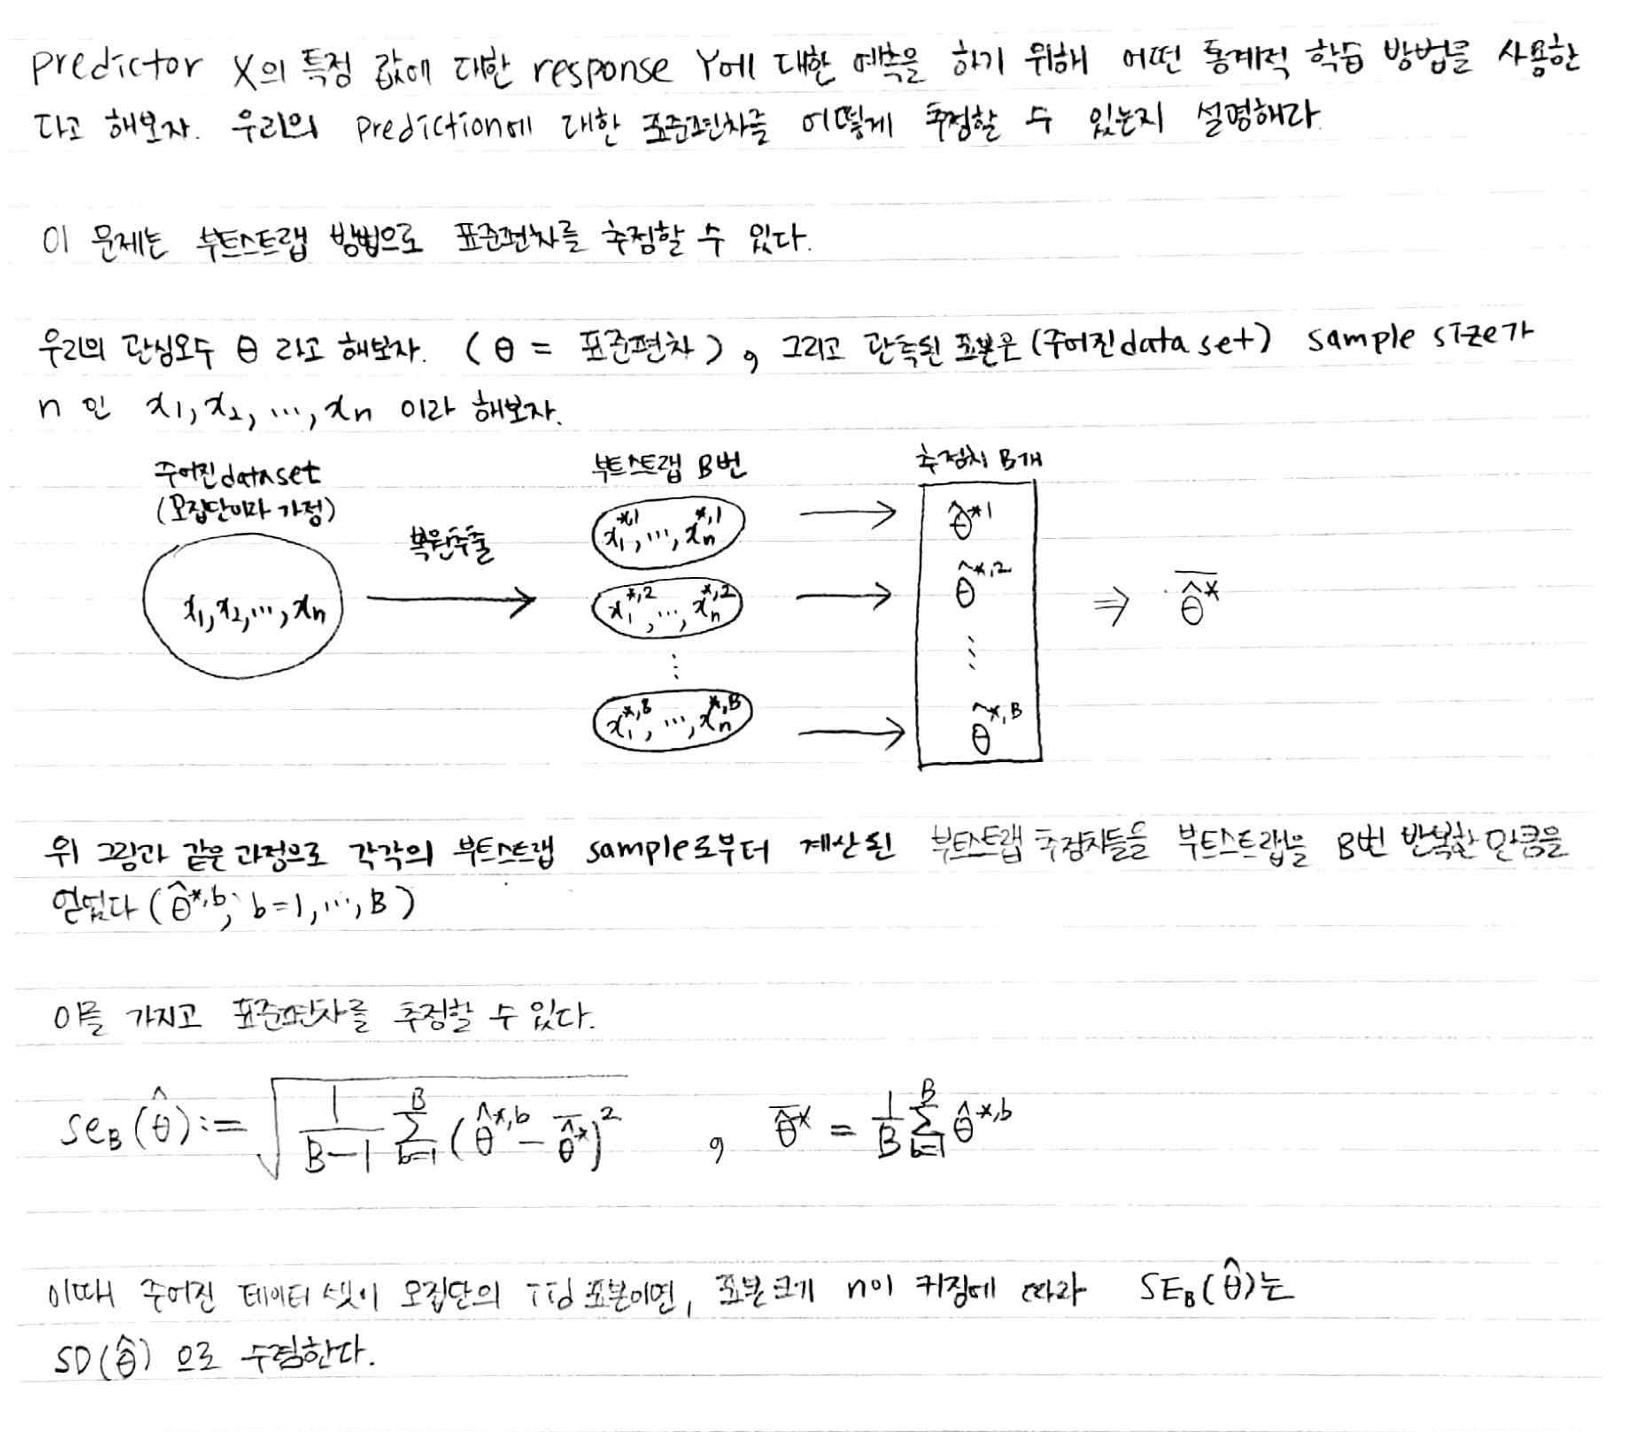 predictor X의 특정 값에 대한 response Y에 대한 예측을 하기 위해 어떤 통계적 학습 방법을 사용한
다고 해보자. 우리의 prediction에 대한 표준편차를 어떻게 추정할 수 있는지 설명해라.
이 문제는 부트스트랩 방법으로 표준편차를 추정할 수 있다.
우리의 관심모수 θ 라고 해보자. (θ = 표준편차), 그리고 관측된 표본은 (주어진 data set) sample size가
n 인 x₁, x₂, ⋯, xₙ 이라 해보자.
주어진 dataset
(모집단이라 가정)
x₁, x₂, ⋯, xₙ
복원추출
부트스트랩 B번
x₁*,¹, ⋯, xₙ*,¹
x₁*,², ⋯, xₙ*,²
⋮
x₁^{*,B}, ⋯, xₙ^{*,B}
추정치 B개
θ̂^{*1}
θ̂^{*,2}
⋮
θ̂^{*,B}
⇒ \overline{θ̂^*}
위 그림과 같은 과정으로 각각의 부트스트랩 sample로부터 계산된 부트스트랩 추정치들을 부트스트랩을 B번 반복한 만큼을
얻는다 (θ̂^{*,b}; b=1, ⋯, B)
이를 가지고 표준편차를 추정할 수 있다.
se_B(θ̂) := \sqrt{\frac{1}{B-1} \sum_{b=1}^{B} (θ̂^{*,b} - \overline{θ̂^*})^2} , \overline{θ̂^*} = \frac{1}{B} \sum_{b=1}^{B} θ̂^{*,b}
이때 주어진 데이터 셋이 모집단의 iid 표본이면, 표본 크기 n이 커짐에 따라 SE_B(θ̂)는
SD(θ̂) 으로 수렴한다.